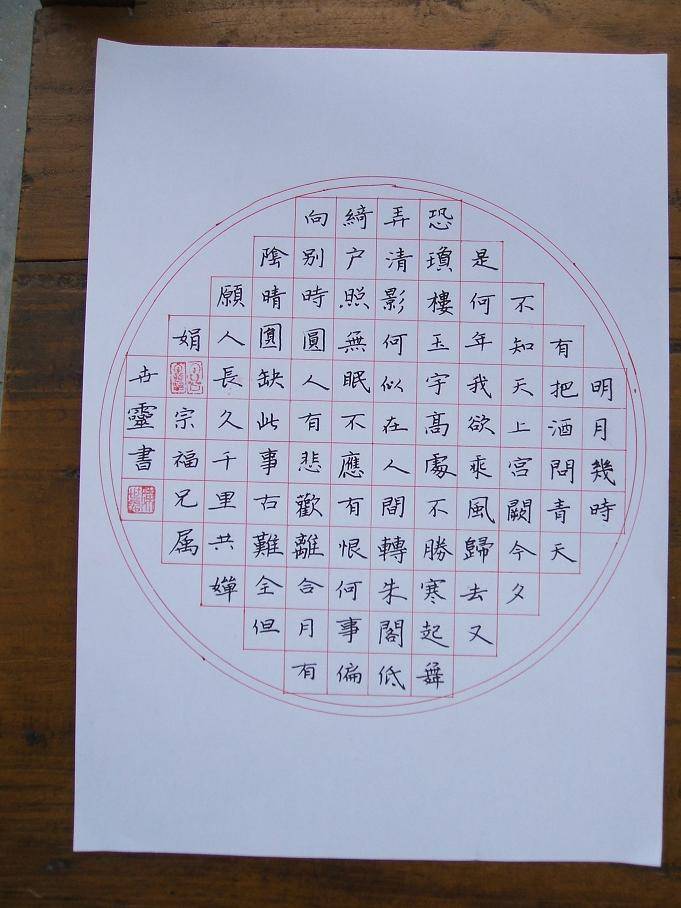 明月幾時
有把酒問青天
不知天上宮闕今夕
是何年我欲乘風歸去又
恐瓊樓玉宇髙處不勝寒起舞
弄清影何似在人間轉朱閣低
綺户照無眠不應有恨何事偏
向别時圓人有悲歡離合月有
隂晴圓缺此事古難全但
願人長久千里共嬋
娟宗福兄属
卋靈書